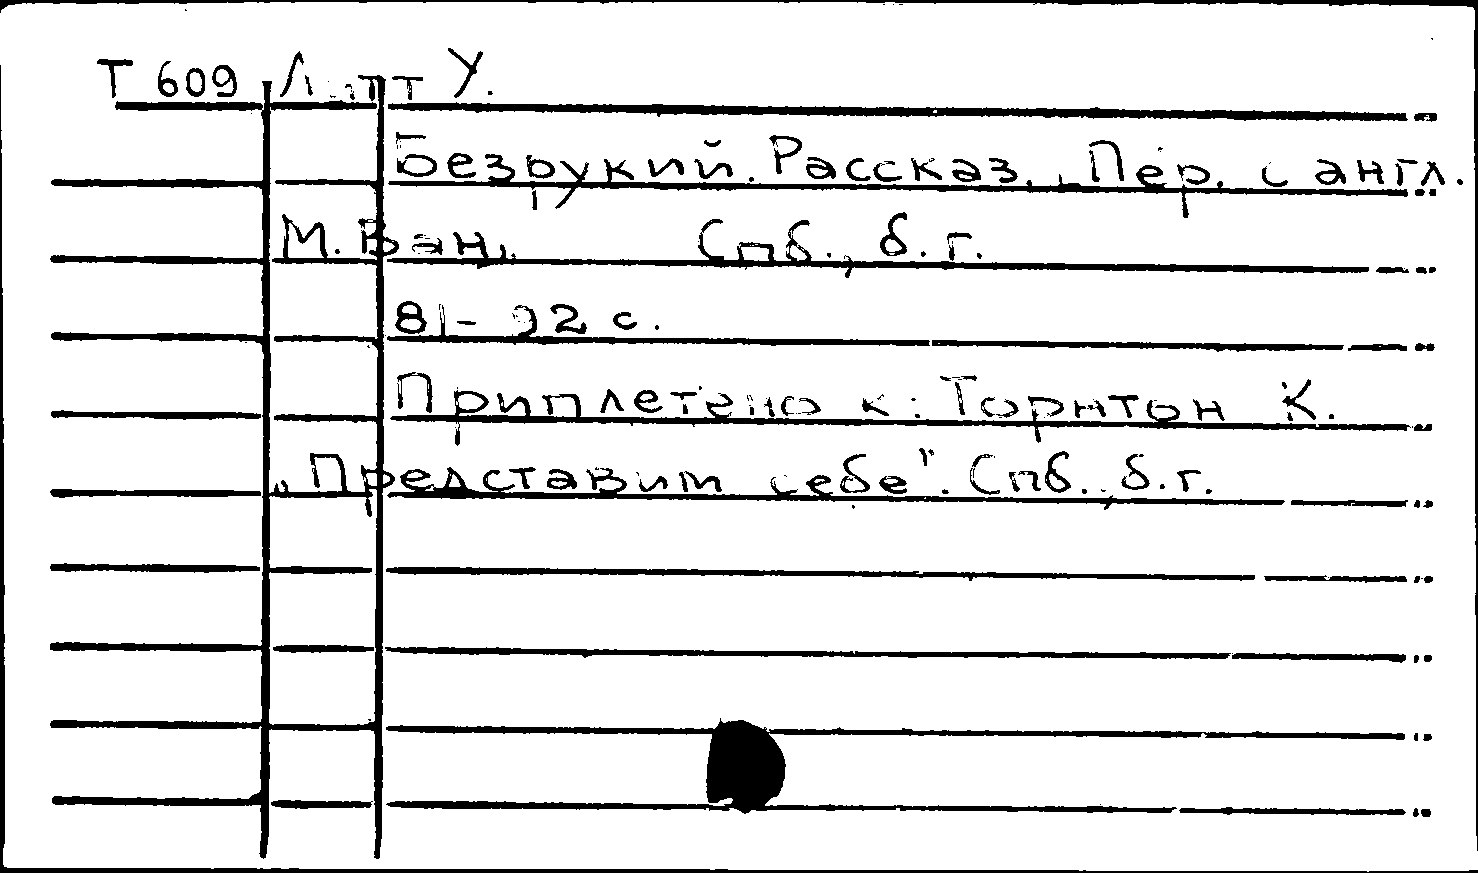 Т 609 Литт У.
Безрукий. Рассказ. Пер. с англ.
М. Ван. Спб., б. г.
81-92 с.
Приплетено к: Торнтон К.
„Представим себе". Спб., б. г.